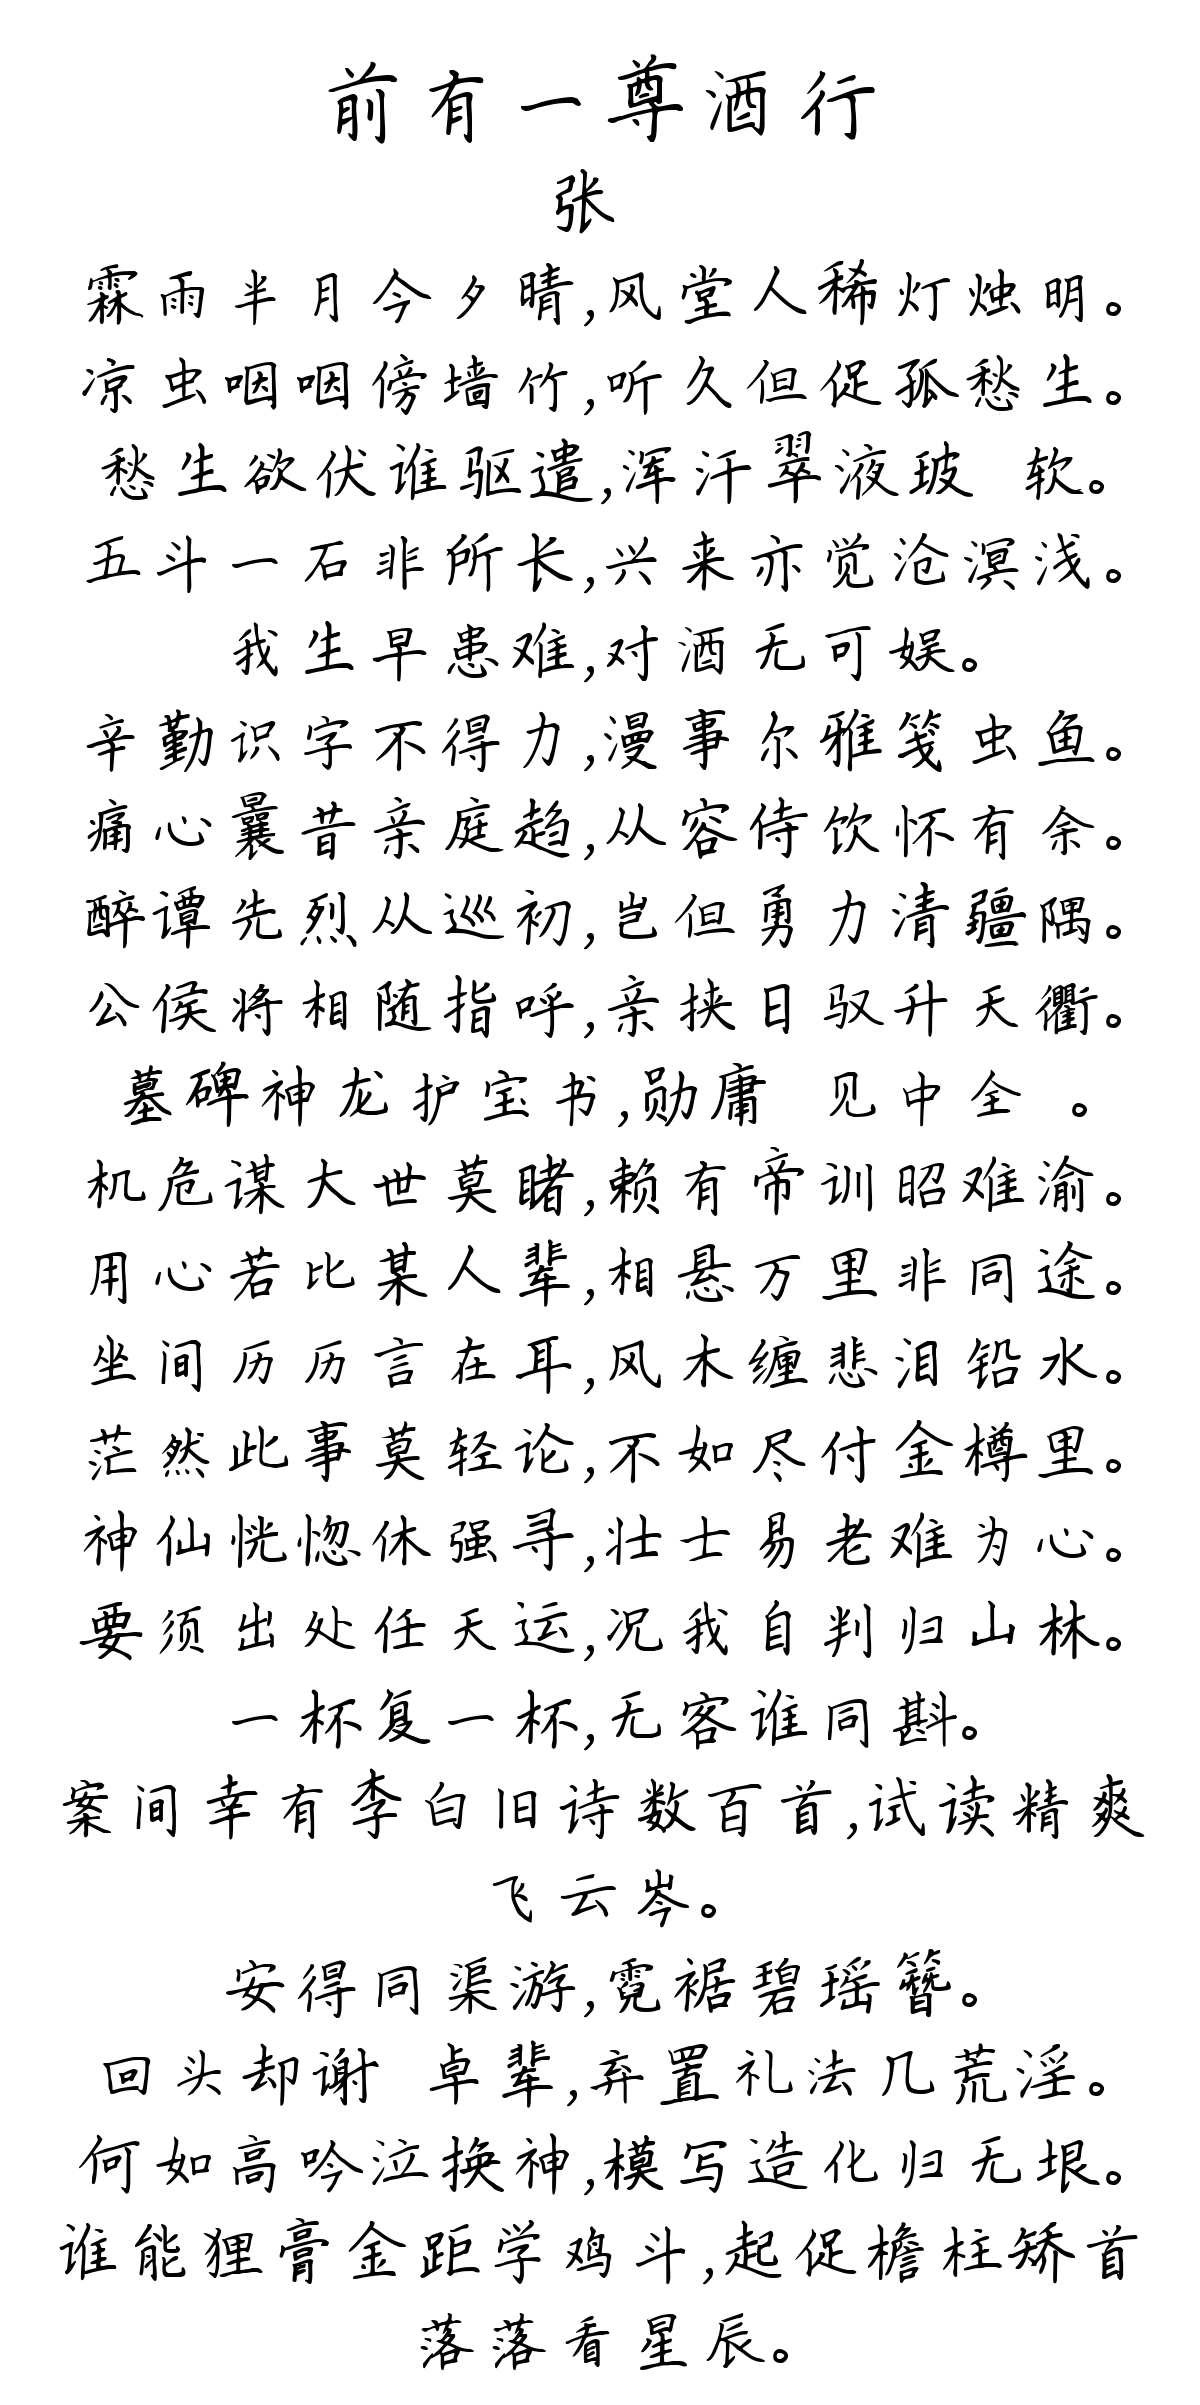 前有一尊酒行
张
霖雨半月今夕晴,风堂人稀灯烛明。
凉虫咽咽傍墙竹,听久但促孤愁生。
愁生欲伏谁驱遣,浑汗翠液玻 软。
五斗一石非所长,兴来亦觉沧溟浅。
我生早患难,对酒无可娱。
辛勤识字不得力,漫事尔雅笺虫鱼。
痛心曩昔亲庭趋,从容侍饮怀有余。
醉谭先烈从巡初,岂但勇力清疆隅。
公侯将相随指呼,亲挟日驭升天衢。
墓碑神龙护宝书,勋庸 见中全 。
机危谋大世莫睹,赖有帝训昭难渝。
用心若比某人辈,相悬万里非同途。
坐间历历言在耳,风木缠悲泪铅水。
茫然此事莫轻论,不如尽付金樽里。
神仙恍惚休强寻,壮士易老难为心。
要须出处任天运,况我自判归山林。
一杯复一杯,无客谁同斟。
案间幸有李白旧诗数百首,试读精爽
飞云岑。
安得同渠游,霓裾碧瑶簪。
回头却谢 卓辈,弃置礼法几荒淫。
何如高吟泣换神,模写造化归无垠。
谁能狸膏金距学鸡斗,起促檐柱矫首
落落看星辰。